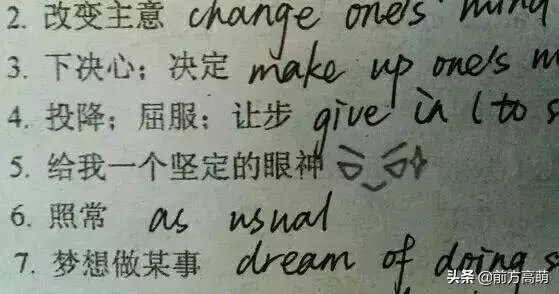 2. 改变主意 change one's mind
3. 下决心；决定 make up one's
4. 投降；屈服；让步 give in (to
5. 给我一个坚定的眼神
6. 照常 as usual
7. 梦想做某事 dream of doing
头条 @前方高萌